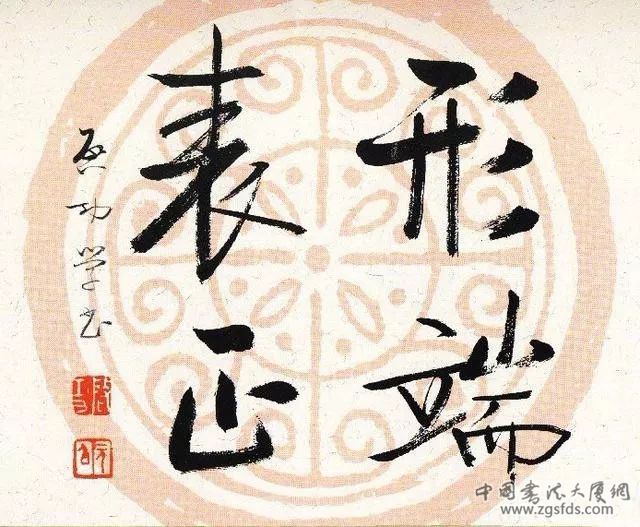 形端
表正
启功学书
中国书法大厦網
www.zgsfds.com